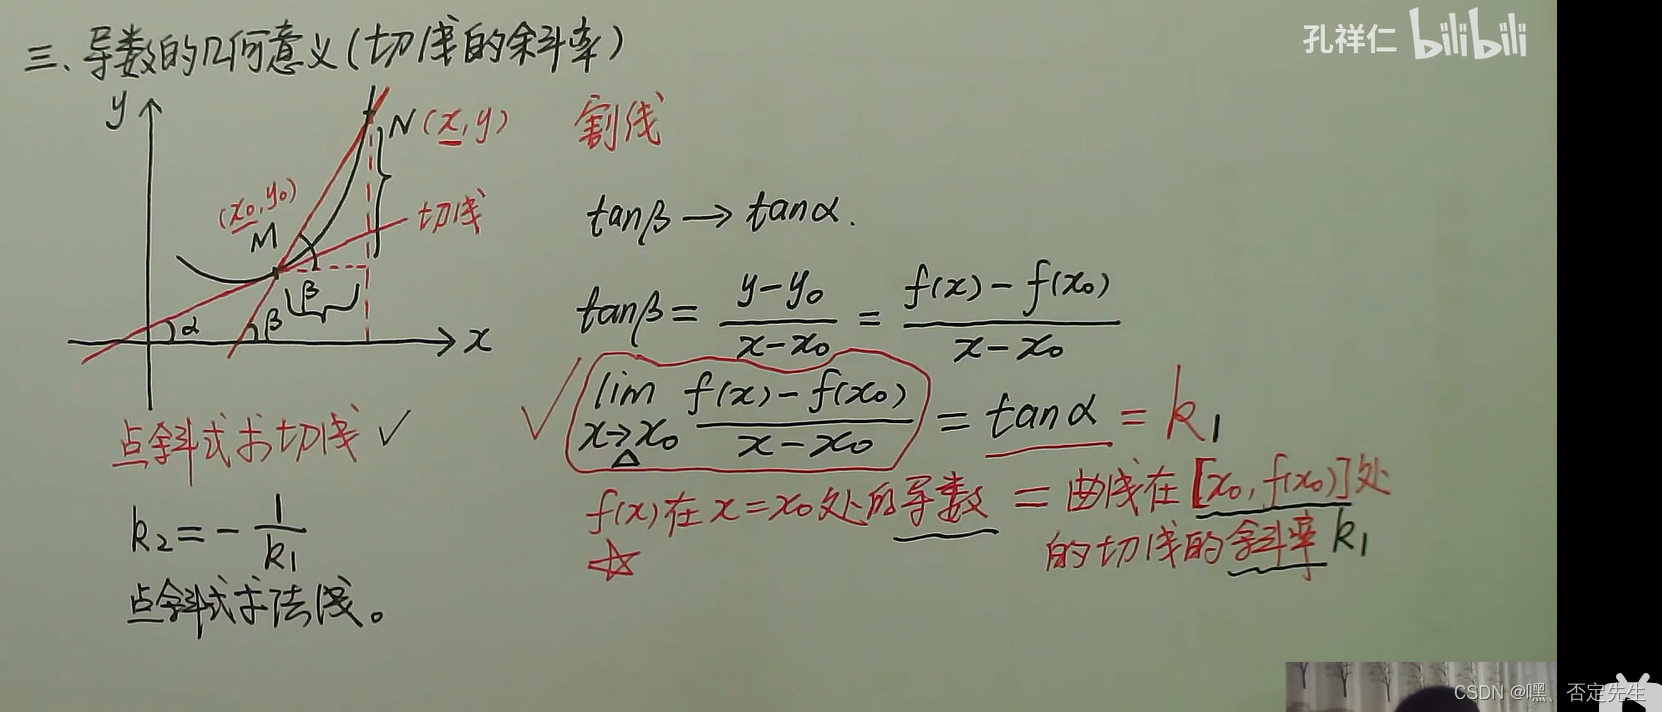 三、导数的几何意义(切线的斜率)
孔祥仁 bilibili
y
N(x,y)
割线
(x₀,y₀)
M
切线
tanβ→tanα.
β
α
β
x
tanβ = (y-y₀)/(x-x₀) = (f(x)-f(x₀))/(x-x₀)
lim x→x₀ (f(x)-f(x₀))/(x-x₀) = tanα = k₁
点斜式求切线 ✓
f(x)在x=x₀处的导数 = 曲线在[x₀,f(x₀)]处
的切线的斜率k₁
k₂=-1/k₁
点斜式求法线。
CSDN @嘿、否定先生